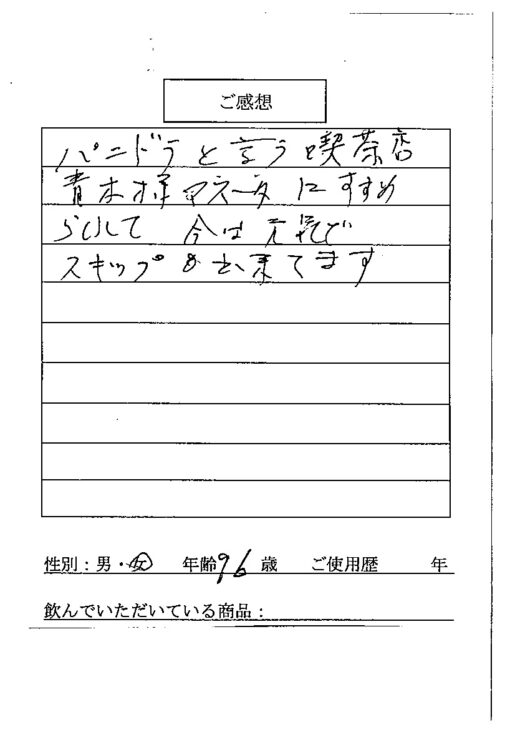 ご感想
パンドラと言う喫茶店
青木様マネータにすすめ
られして 今は元気で
スキップも出来てます
性別：男・女 年齢96歳 ご使用歴 年
飲んでいただいている商品：